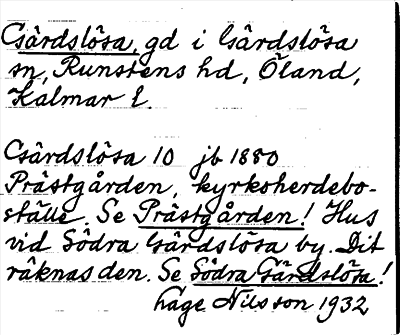 Gärdslösa, gd i Gärdslösa
sn, Runstens hd, Öland,
Kalmar l.
Gärdslösa 10 jb 1880
Prästgården, kyrkoherdebo-
ställe. Se Prästgården! Hus
vid Södra Gärdslösa by. Dit
räknas den. Se Södra Gärdslösa!
Hage Nilsson 1932